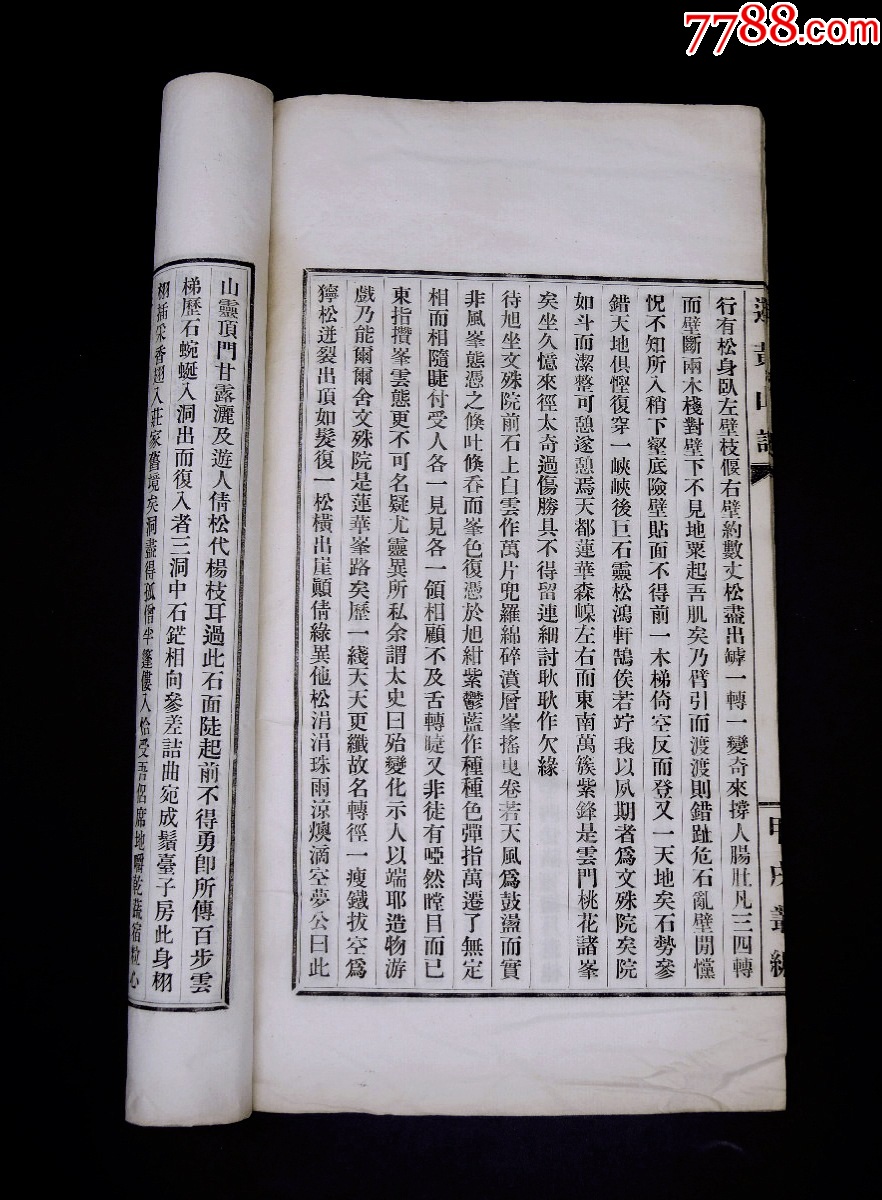 7788.com
遊黃山記
甲戌叢編
行有松身臥左壁枝偃右壁約數丈松盡出罅一轉一變奇來撐人腸肚凡三四轉
而壁斷兩木棧對壁下不見地粟起吾肌矣乃臂引而渡渡則錯趾危石亂壁閒懂
怳不知所入稍下壑底險壁貼面不得前一木梯倚空反而登又一天地矣石勢參
錯天地俱慳復穿一峽峽後巨石靈松鴻軒鵠俟若竚我以夙期者爲文殊院矣院
如斗而潔整可憩遂憩焉天都蓮華森嵲左右而東南萬簇紫鋒是雲門桃花諸峯
矣坐久憶來徑太奇過傷勝具不得留連細討耿耿作欠緣
待旭坐文殊院前石上白雲作萬片兜羅綿碎濆層峯搖曳卷若天風爲鼓盪而實
非風峯態憑之倏吐倏吞而峯色復憑於旭紺紫鬱藍作種種色彈指萬遷了無定
相而相隨睫付受人各一見見各一領相顧不及舌轉睫又非徒有啞然瞠目而已
東指攢峯雲態更不可名疑尤靈異所私余謂太史曰殆變化示人以端耶造物游
戲乃能爾爾舍文殊院是蓮華峯路矣歷一綫天天更纖故名轉徑一瘦鐵拔空爲
獰松迸裂出頂如髮復一松橫出崖顚倩綠異他松涓涓珠雨涼燠滴空夢公曰此
山靈頂門甘露灑及遊人倩松代楊枝耳過此石面陡起前不得勇卽所傳百步雲
梯歷石蜿蜒入洞出而復入者三洞中石鋩相向參差詰曲宛成鬚臺子房此身栩
栩插朵香翅入莊家舊境矣洞盡得孤僧半篷僂入恰受吾侶席地嚼乾蔬宿粒心